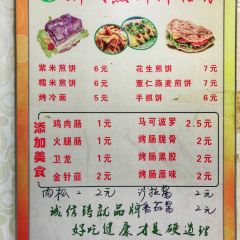 紫米煎饼 6元 花生煎饼 7元
糯米煎饼 6元 薏仁燕麦煎饼 7元
烤冷面 5元 手抓饼 6元
添加美食
鸡肉肠 1元 马可波罗 2.5元
火腿肠 1元 烤肠脆骨 2元
卫龙 1元 烤肠黑胶 2元
金针菇 2元 烤肠原味 2元
肉松 2元 沙拉酱 2元
香菇酱 2元
诚信铸就品牌
好吃健康才是硬道理